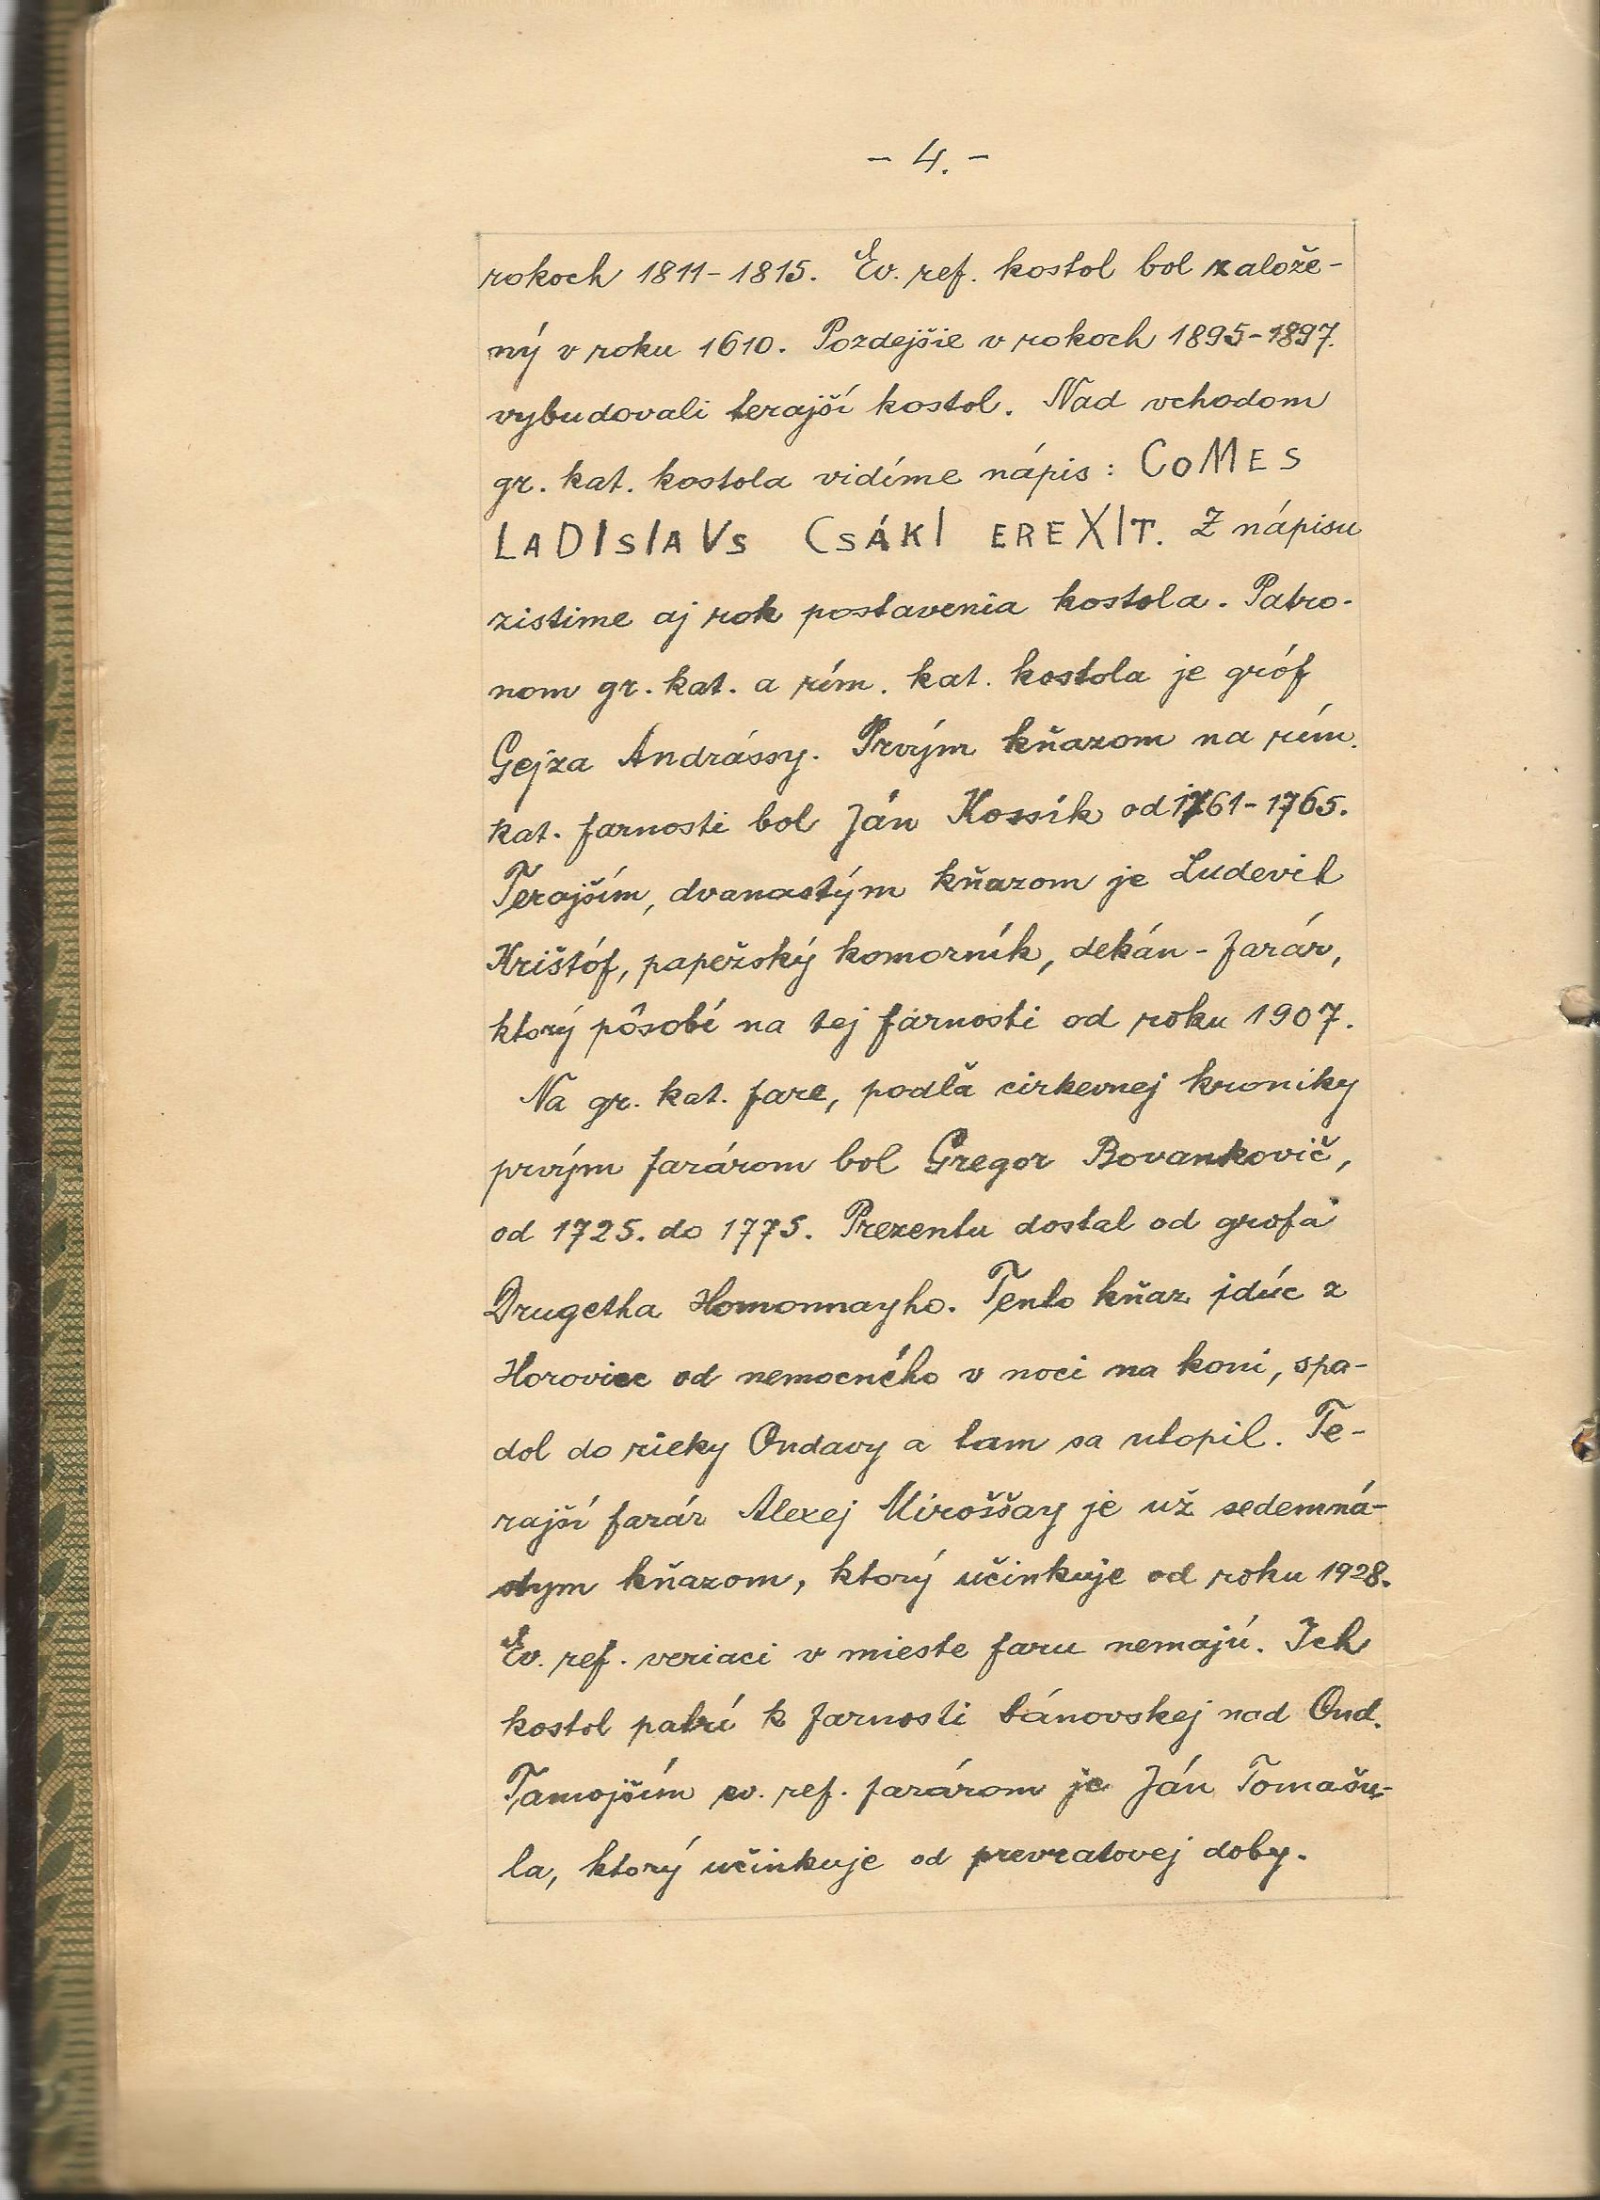 - 4. -
rokoch 1811-1815. Ev. ref. kostol bol založe-
ný v roku 1610. Pozdejšie v rokoch 1895-1897.
vybudovali terajší kostol. Nad vchodom
gr. kat. kostola vidíme nápis: CoMES
LADIslAVs CsÁKI EREXIT. Z nápisu
zistime aj rok postavenia kostola. Patro-
nom gr. kat. a rím. kat. kostola je gróf
Gejza Andrássy. Prvým kňazom na rím.
kat. farnosti bol Ján Kossík od 1761-1765.
Terajším, dvanastým kňazom je Ľudevit
Krištóf, papežský komorník, dekán-farár,
ktorý pôsobí na tej farnosti od roku 1907.
Na gr. kat. fare, podľa cirkevnej kroniky
prvým farárom bol Gregor Bovankovič,
od 1725. do 1775. Prezentu dostal od grofa
Drugetha Homonnayho. Tento kňaz idúc z
Horoviec od nemocného v noci na koni, spa-
dol do rieky Ondavy a tam sa utopil. Te-
rajší farár Alexej Miroššay je už sedemná-
stym kňazom, ktorý učinkuje od roku 1928.
Ev. ref. veriaci v mieste faru nemajú. Ich
kostol patrí k farnosti bánovskej nad Ond.
Tamojším ev. ref. farárom je Ján Tomašu-
la, ktorý učinkuje od prevratovej doby.